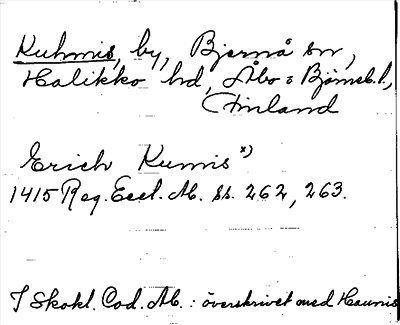 Kuhmis, by, Bjernå sn,
Halikko hd, Åbo o Björneb. l,
(Finland
Erich Kumis x)
1415 Reg. Eccl. Ab. ss. 262, 263.
I Skokl. Cod. Ab. : överskrivet med Haumis